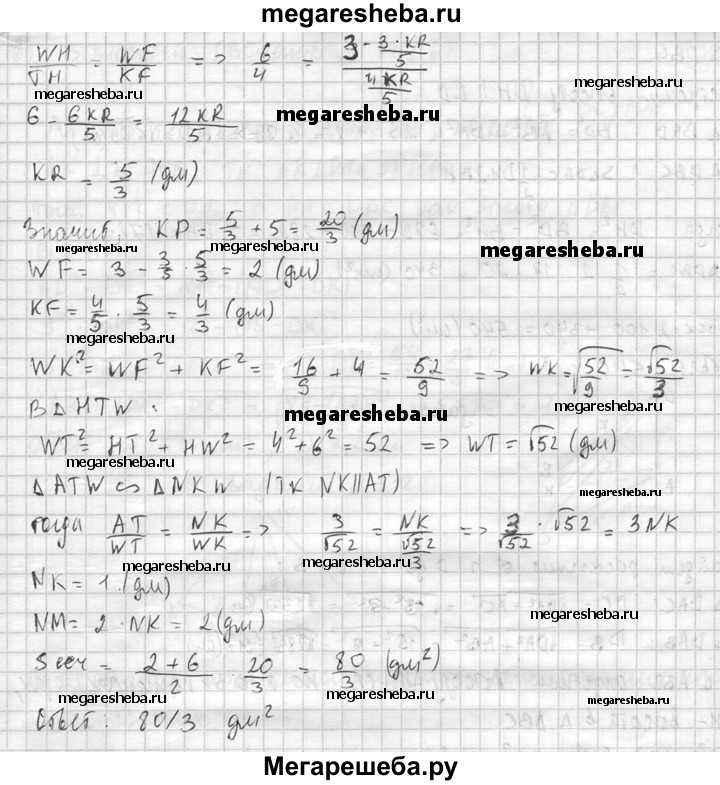 megaresheba.ru
WH/TH = WF/KF => 6/4 = (3 - 3·KR/5)/(4KR/5)
megaresheba.ru
megaresheba.ru
megaresheba.ru
6 - 6KR/5 = 12KR/5
megaresheba.ru
KR = 5/3 (дм)
megaresheba.ru
megaresheba.ru
Значит, KP = 5/3 + 5 = 20/3 (дм)
megaresheba.ru
megaresheba.ru
megaresheba.ru
WF = 3 - 3/5 · 5/3 = 2 (дм)
KF = 4/5 · 5/3 = 4/3 (дм)
megaresheba.ru
WK² = WF² + KF² = 16/9 + 4 = 52/9 => WK = √52/9 = √52/3
megaresheba.ru
megaresheba.ru
В Δ HTW :
WT² = HT² + HW² = 4² + 6² = 52 => WT = √52 (дм)
megaresheba.ru
Δ ATW ∽ Δ NKW (тк NK||AT)
megaresheba.ru
тогда AT/WT = NK/WK => 3/√52 = NK/(√52/3) => 3/√52 · √52 = 3NK
megaresheba.ru
megaresheba.ru
megaresheba.ru
NK = 1 (дм)
megaresheba.ru
NM = 2 · NK = 2 (дм)
megaresheba.ru
S сеч = (2+6)/2 20/3 = 80/3 (дм²)
megaresheba.ru
megaresheba.ru
megaresheba.ru
Ответ: 80/3 дм²
Мегарешеба.ру